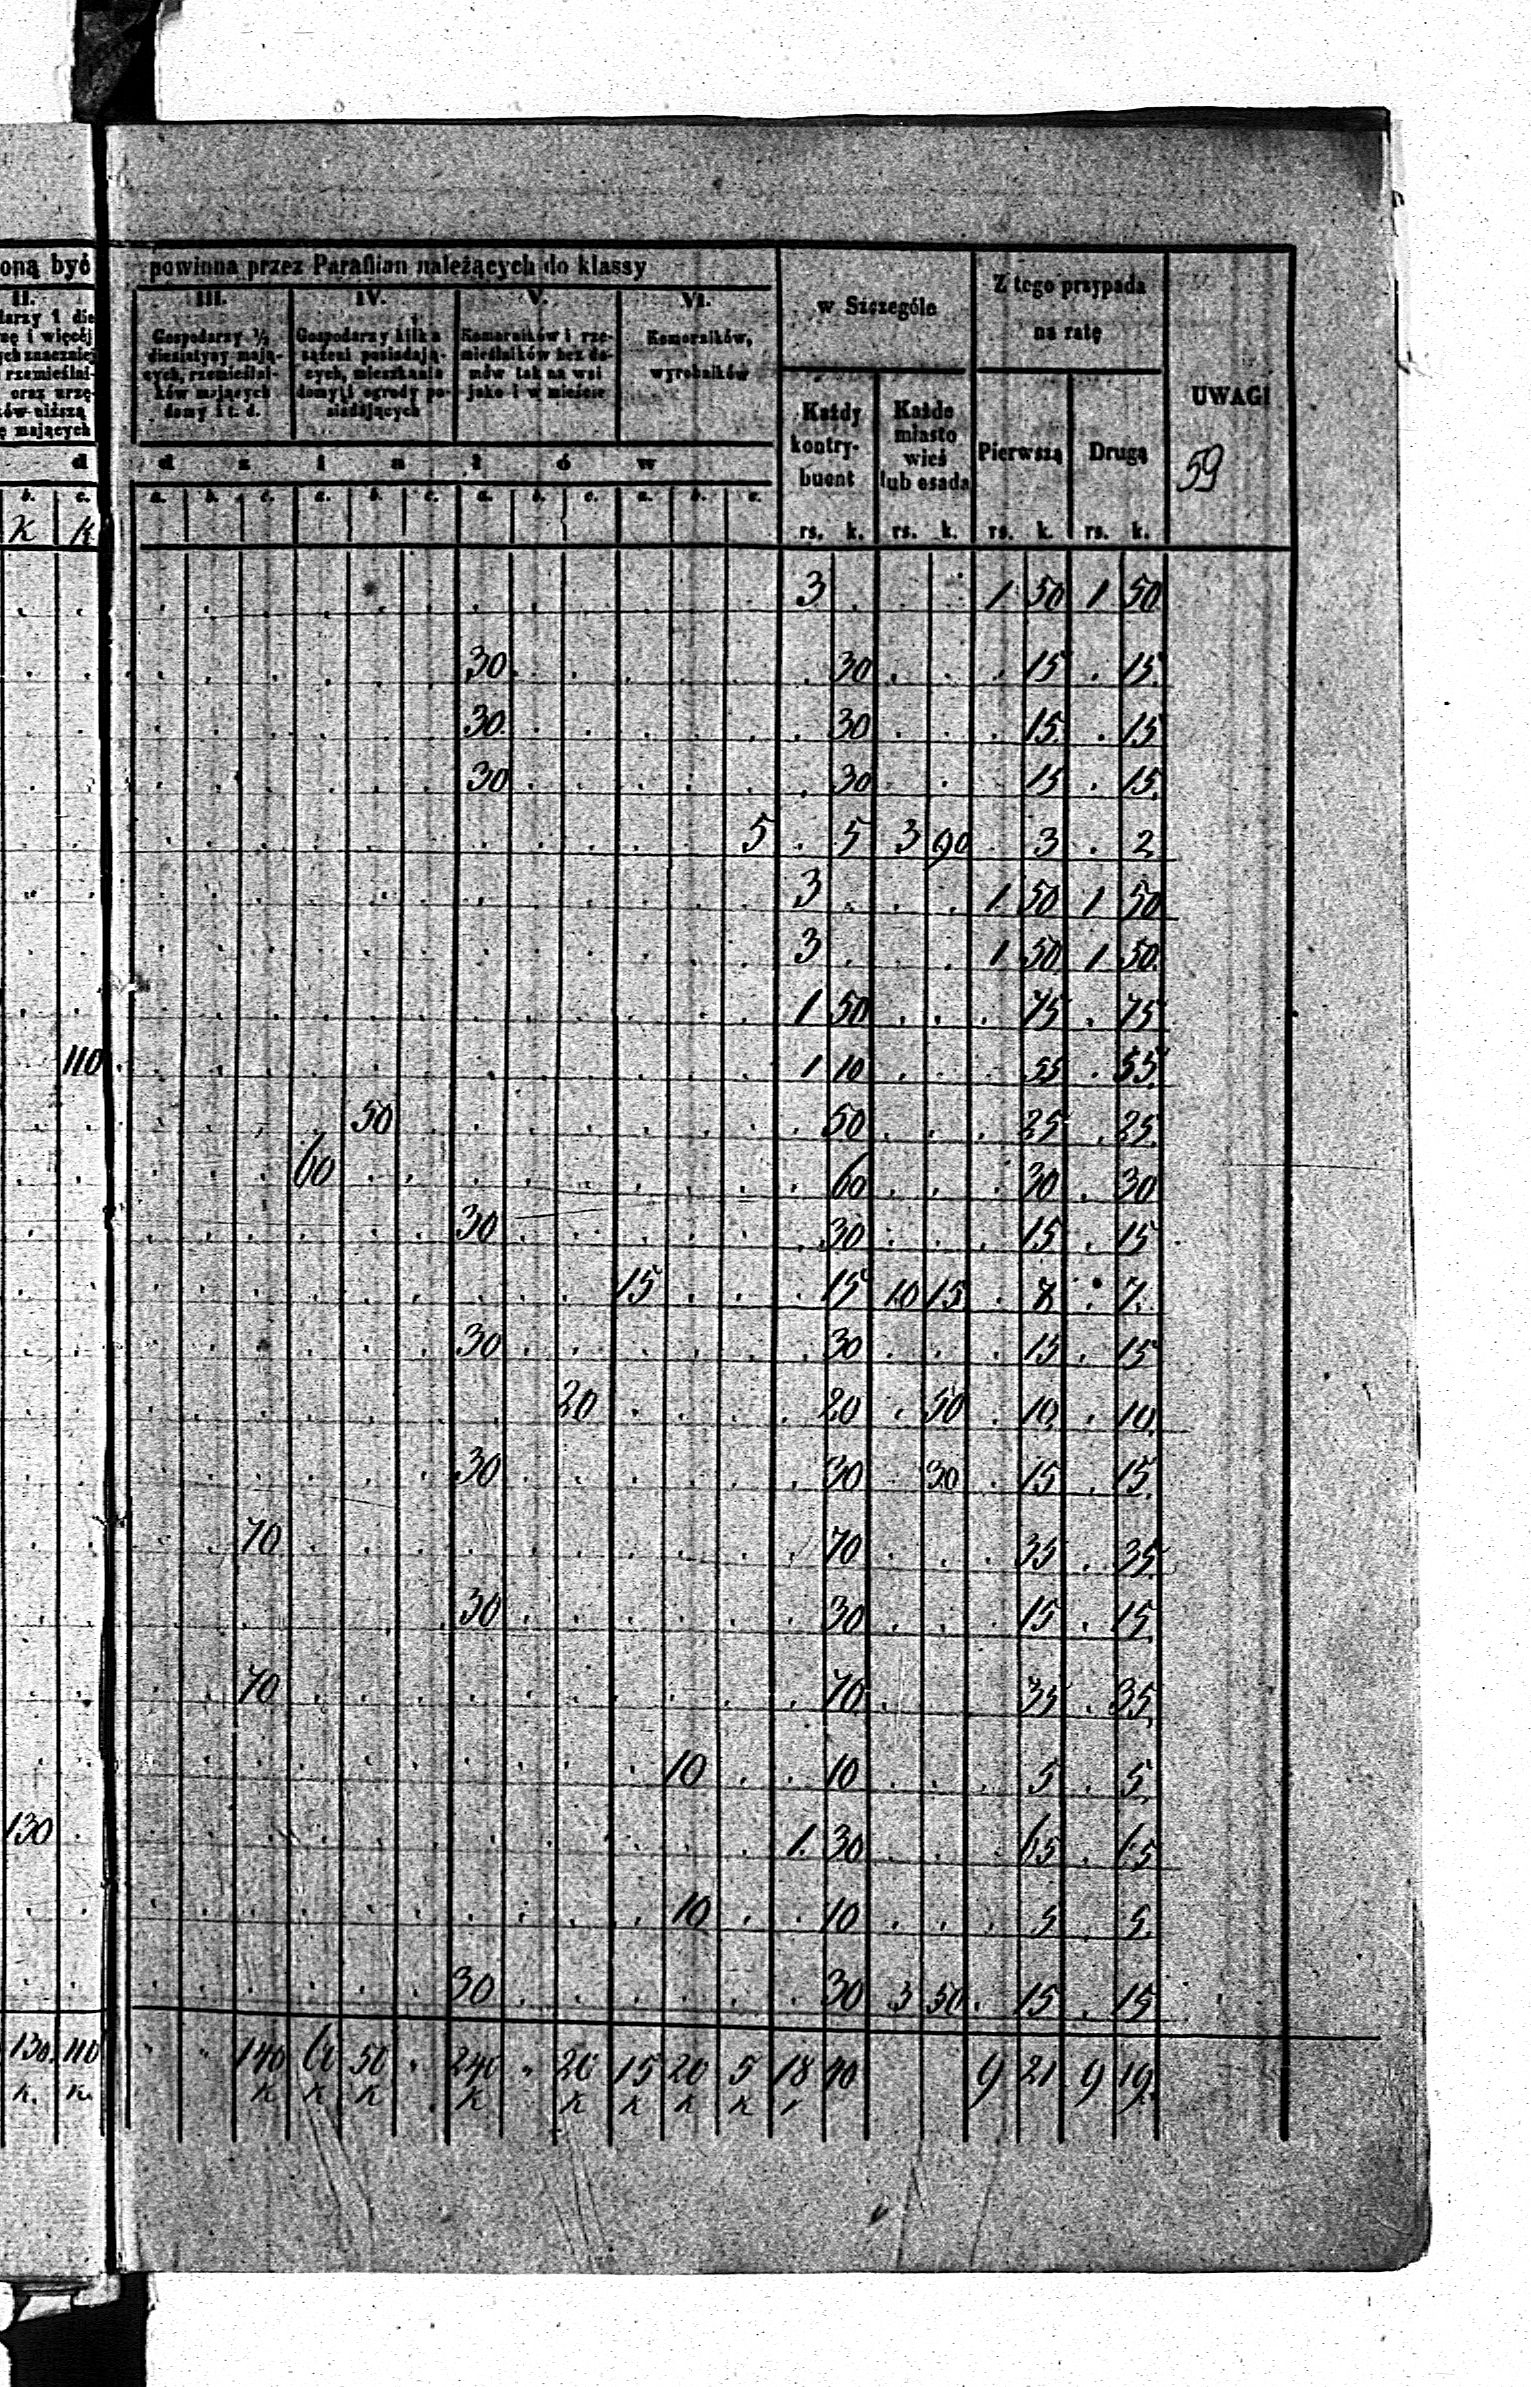 oną być powinna przez Parafian należących do klassy
w Szczególe
Z tego przypada
na ratę
UWAGI
59
II. III. IV. V. VI.
darzy 1 die
nę i więcéj
ych znaczniej
rzemieślni-
oraz urzę-
ków niższą
ę mających
Gospodarzy ½
diesiatyny mają-
cych, rzemieślni-
ków mających
domy i t. d.
Gospodarzy kilka
sążeni posiadają-
cych, mieszkania
domy i ogrody po-
siadających
Komorników i rze-
mieślników bez do-
mów tak na wsi
jako i w mieście
Komorników,
wyrobników
Każdy
kontry-
buent
Każde
miasto
wieś
lub osada
Pierwszą
Drugą
d d z i n i ó w
b. c. a. b. c. a. b. c. a. b. c. a. b. c.
k k rs. k. rs. k. rs. k. rs. k.
3 1 50 1 50
30 30 15 15
30 30 15 15
30 30 15 15
5 5 3 90 3 2
3 1 50 1 50
3 1 50 1 50
1 50 75 75
110 1 10 55 55
50 50 25 25
60 60 30 30
30 30 15 15
15 15 10 15 8 7
30 30 15 15
20 20 50 10 10
30 30 30 15 15
70 70 35 35
30 30 15 15
70 70 35 35
10 10 5 5
130 1 30 65 65
10 10 5 5
30 30 3 50 15 15
130 110 140 60 50 240 20 15 20 5 18 40 9 21 9 19
k. k. k k k k k k k k r